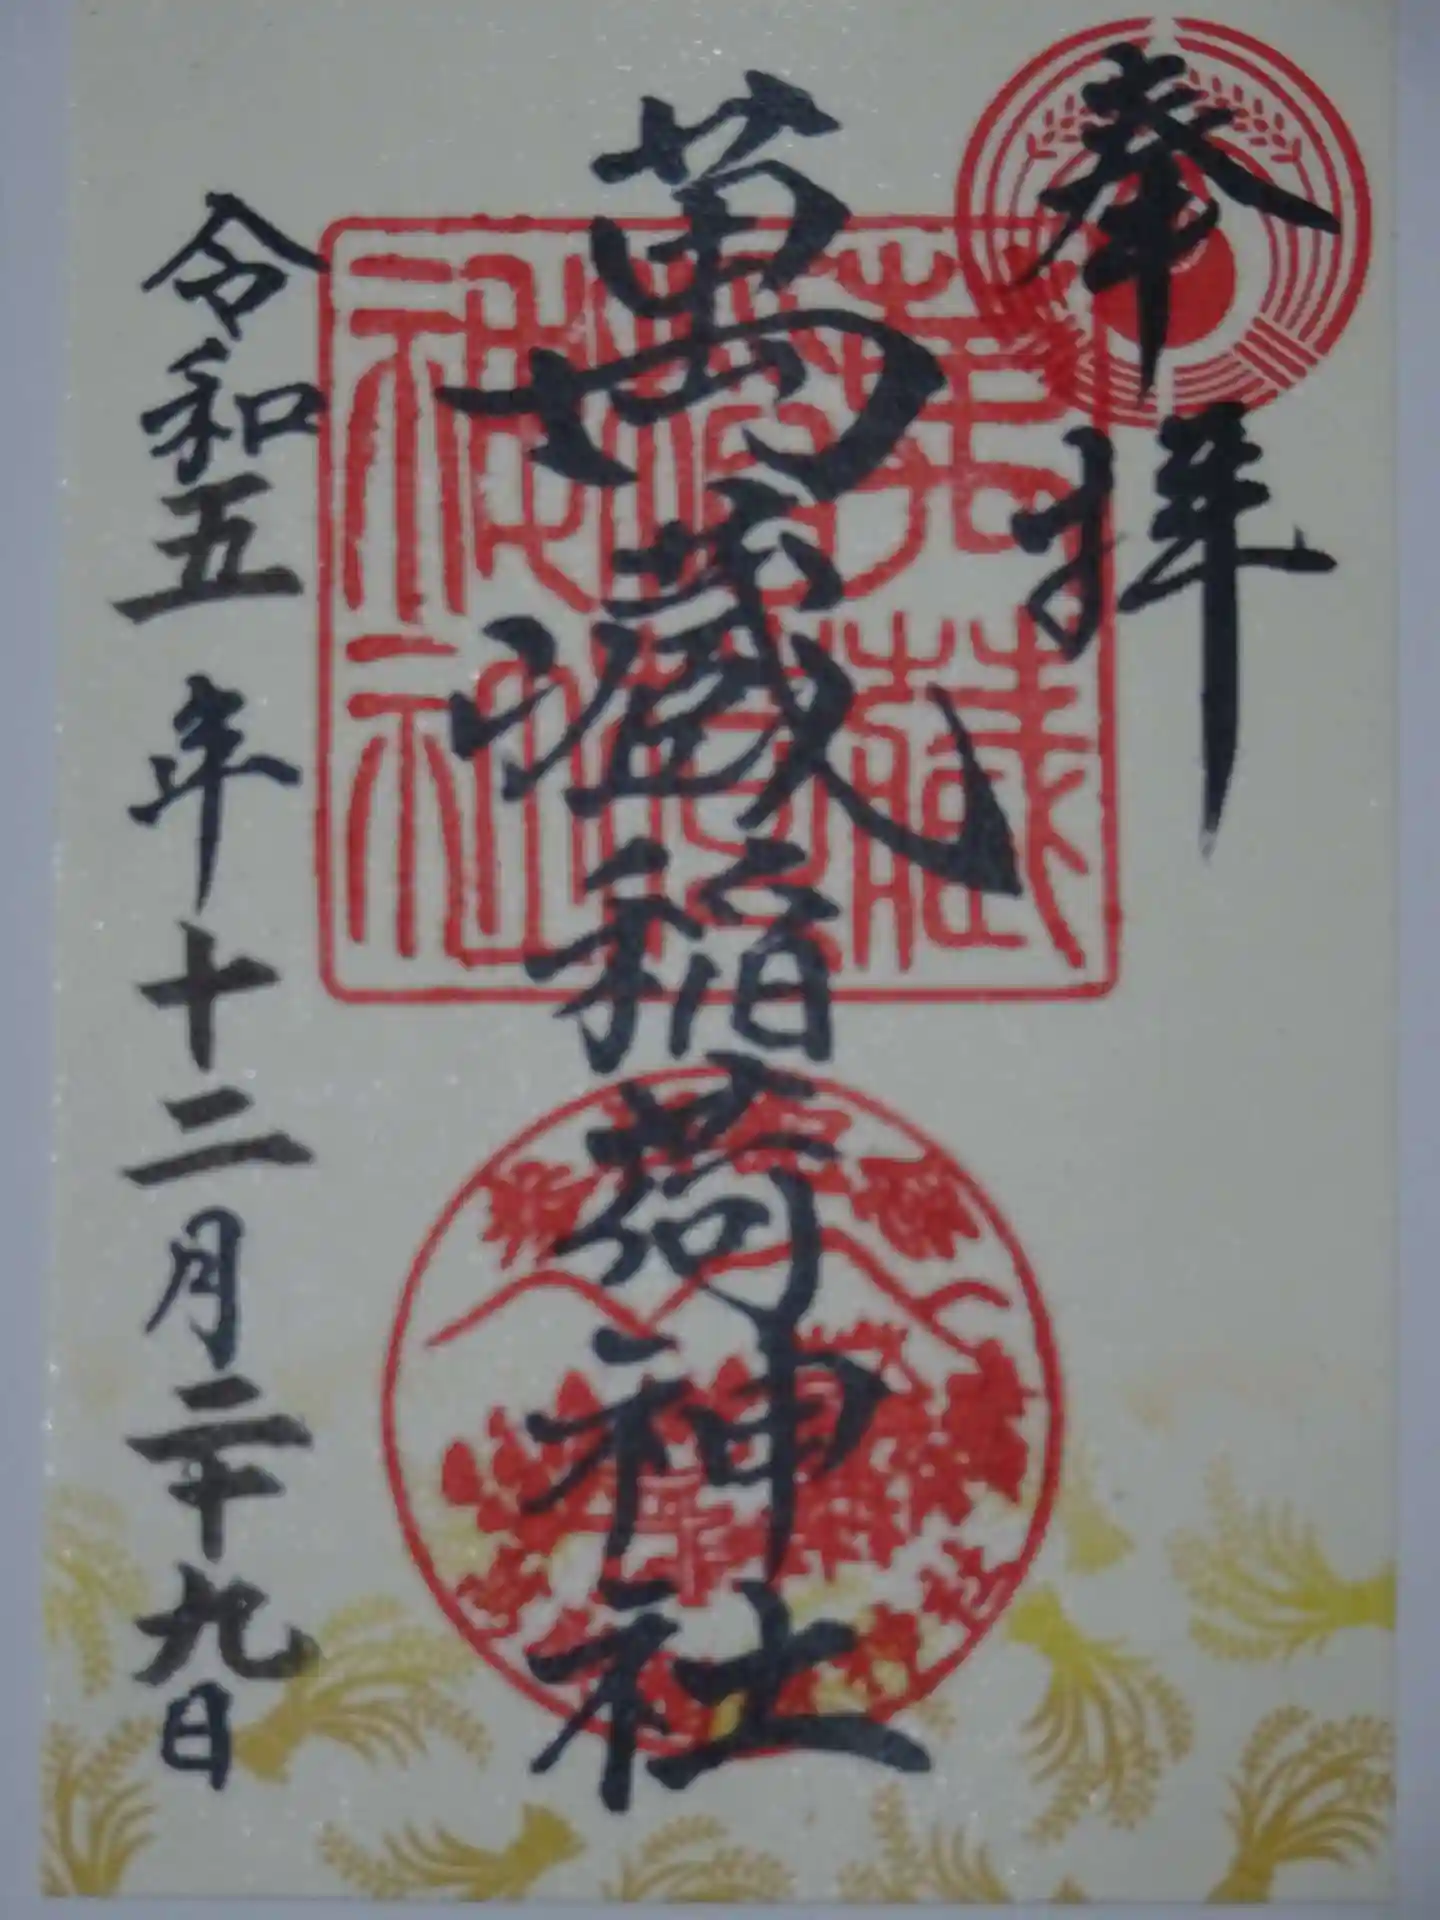 奉拝
萬蔵稲荷神社
令和五年十二月二十九日
萬藏
稲荷
神社